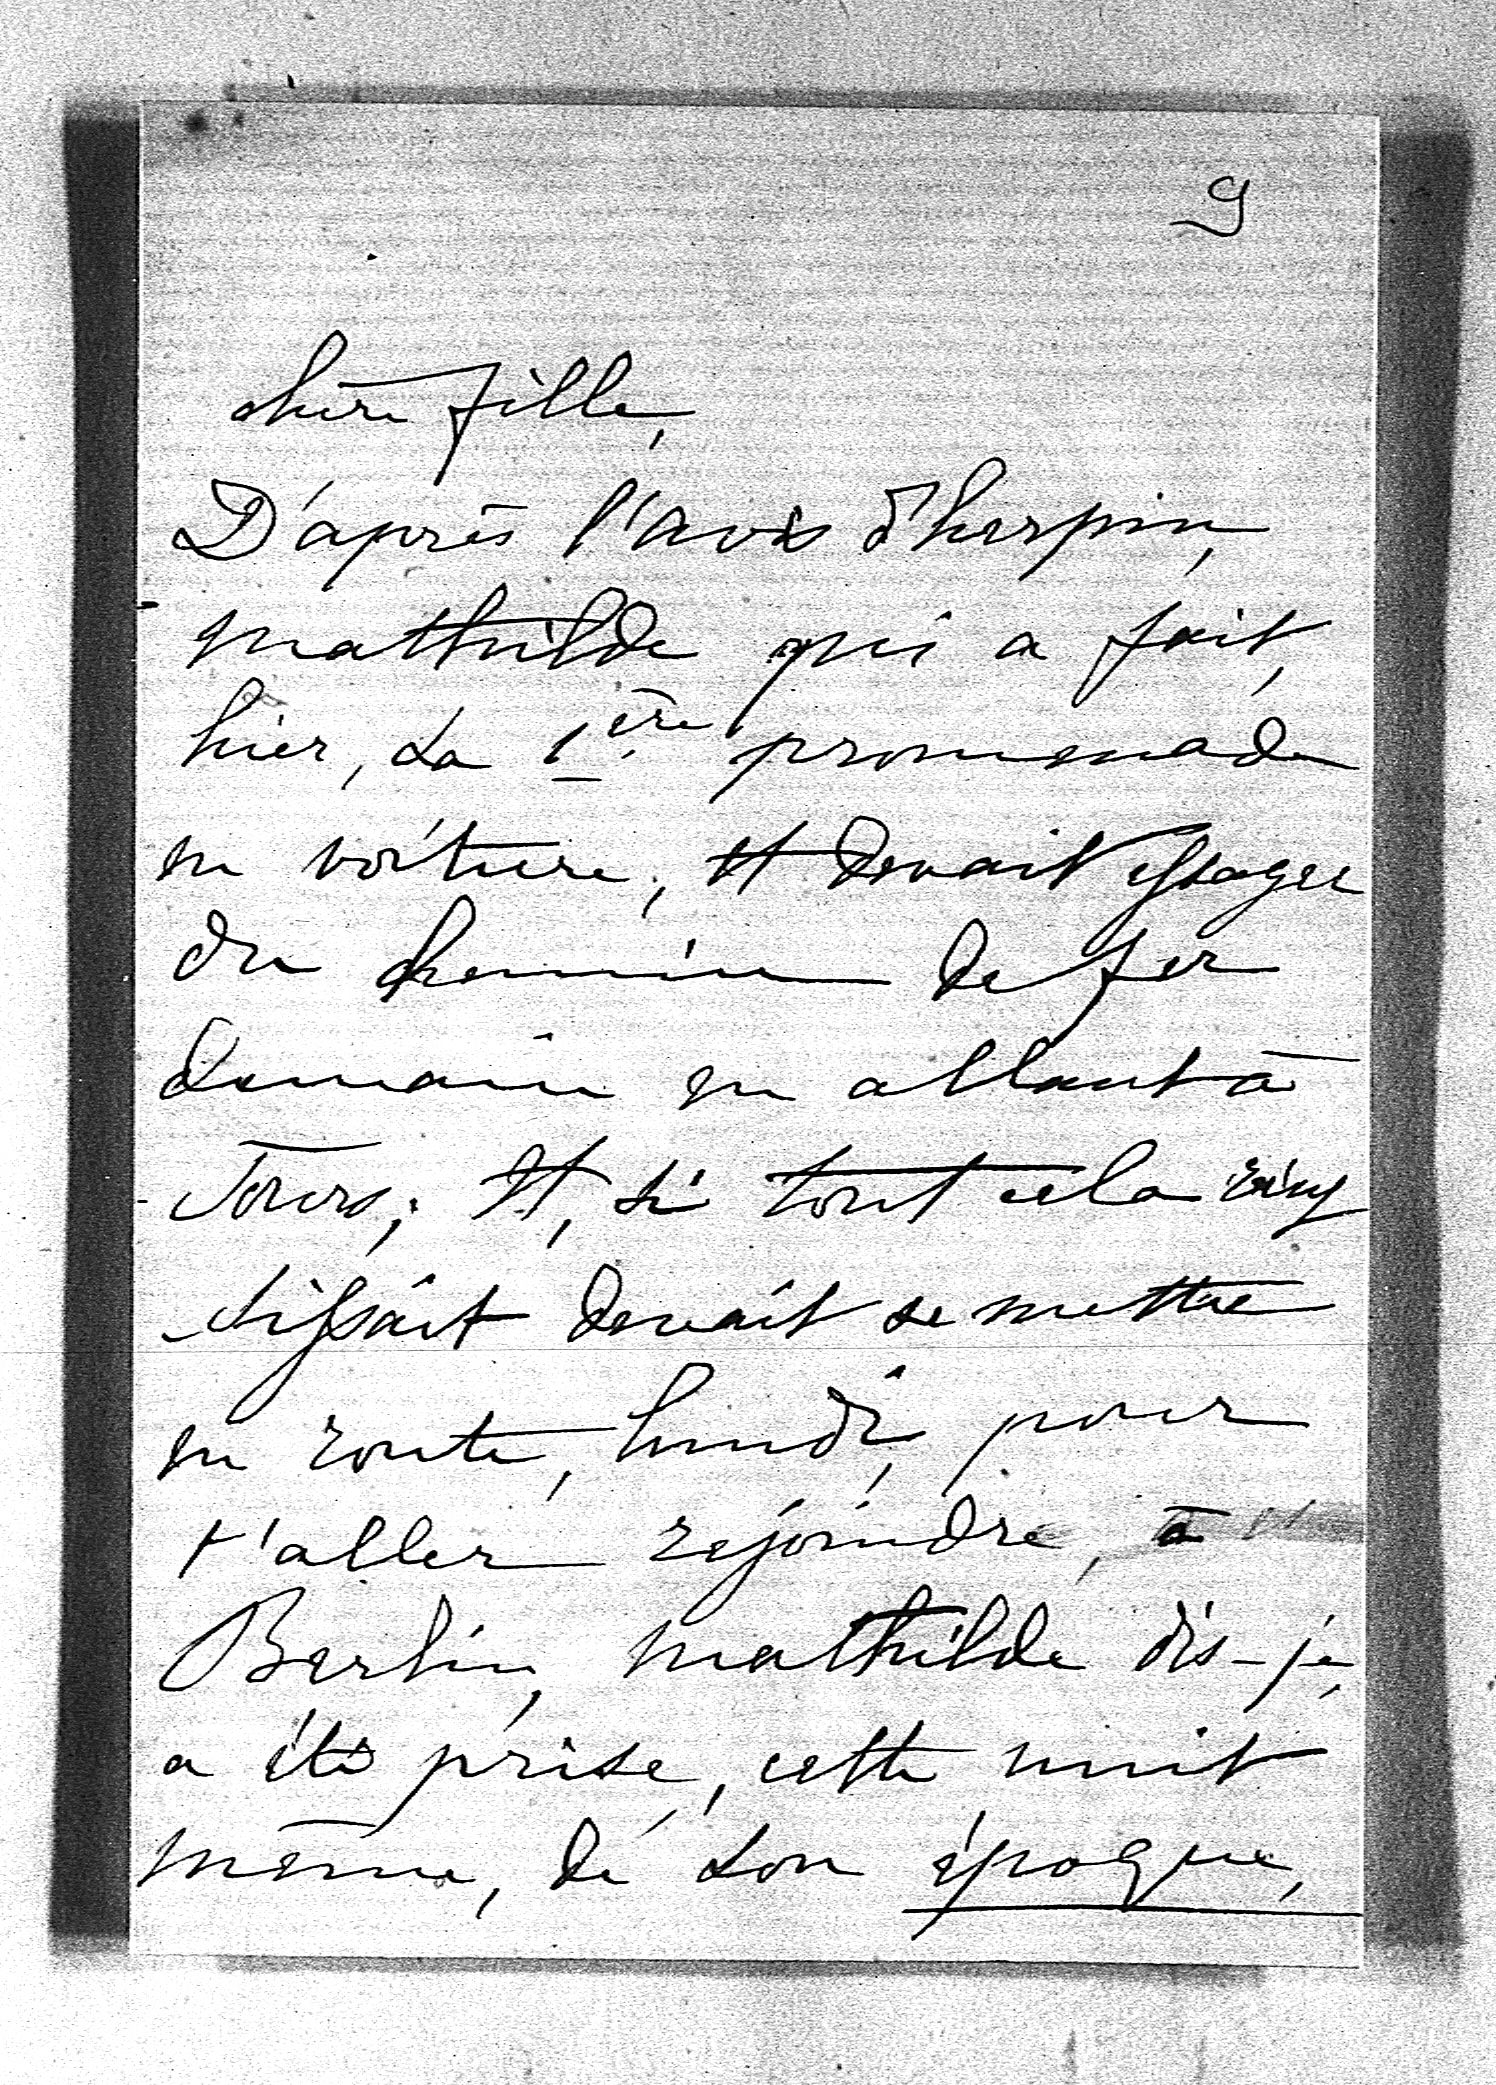 9
chère fille,
D'après l'avis d'herpin,
mathilde qui a fait,
hier, sa 1ère promenade
en voiture, et devait essayer
du chemin de fer
demain en allant à
Tours; et, si tout cela réus
sissait devait se mettre
en route, lundi, pour
t'aller rejoindre, à
Berlin, mathilde dis-je,
a été prise, cette nuit
même, de son époque,